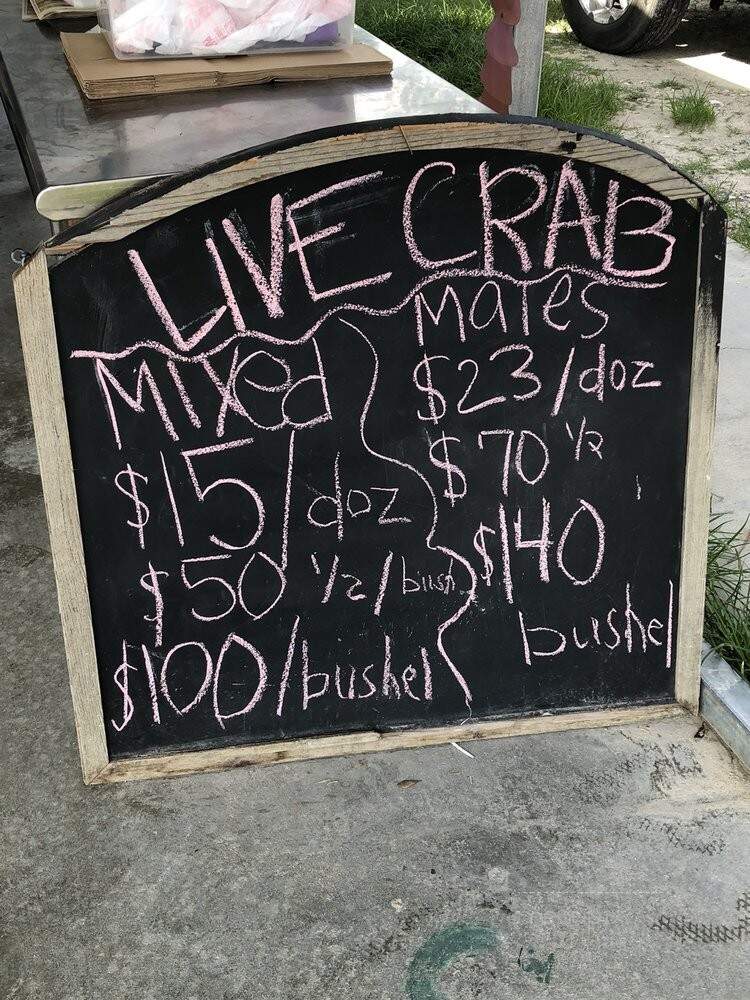 LIVE CRAB
MIXed
$15/doz
$50 1/2/bush
$100/bushel
MaTes
$23/doz
$70 1/2
$140
bushel